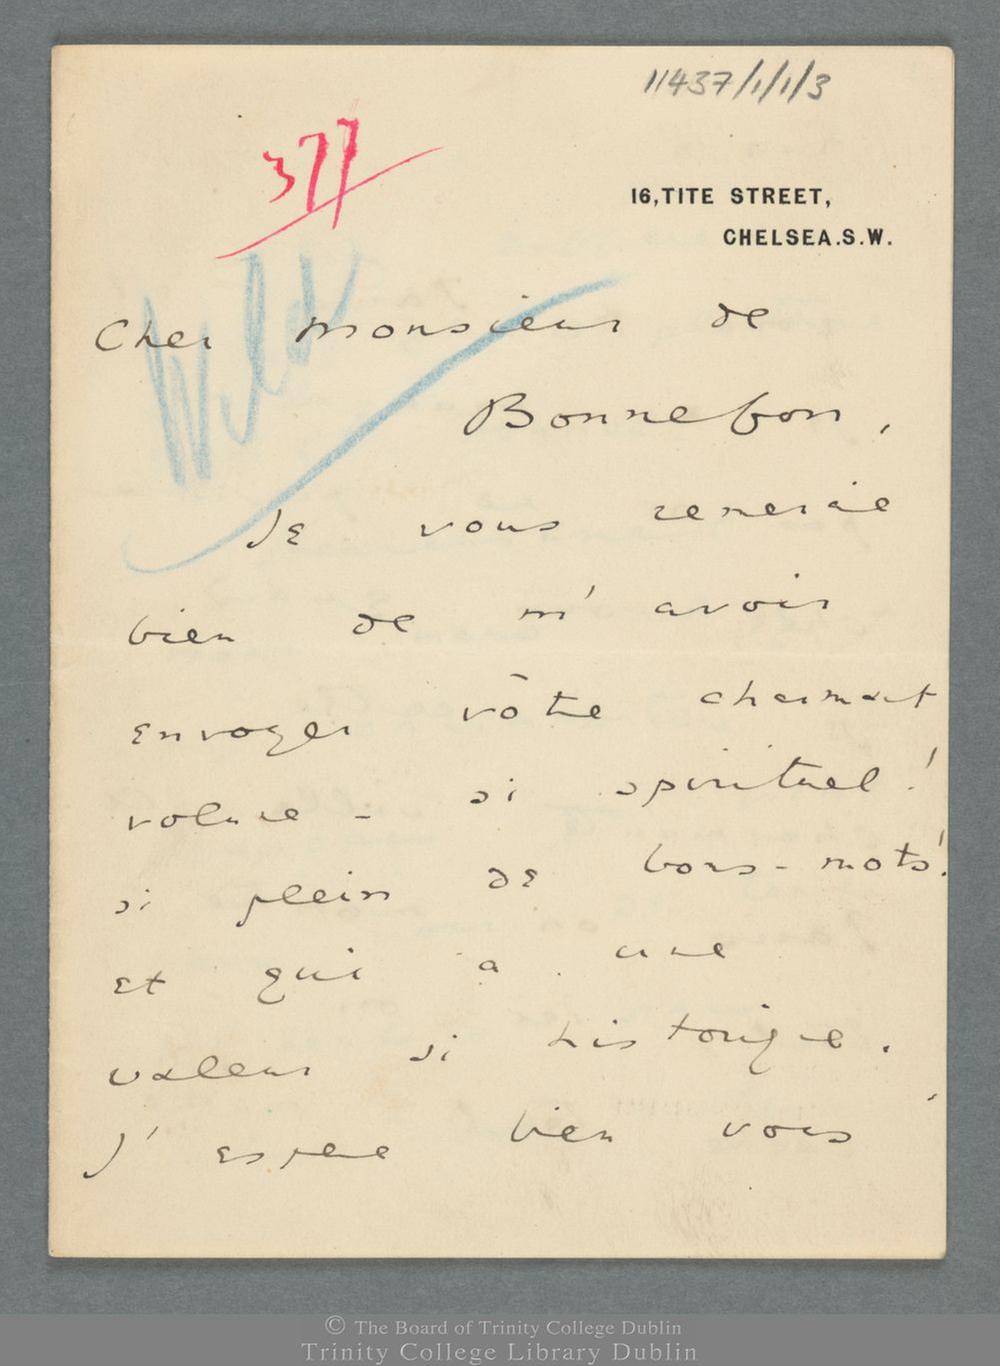 11437/1/1/3
377
16, TITE STREET,
CHELSEA. S.W.
Wilde
Cher Monsieur de
Bonnefon,
Je vous remercie
bien de m'avoir
envoyer vōtre charmant
volume - si spirituel!
si plein de bons-mots!
et qui a une
valeur si historique.
J'espere bien vous
© The Board of Trinity College Dublin
Trinity College Library Dublin